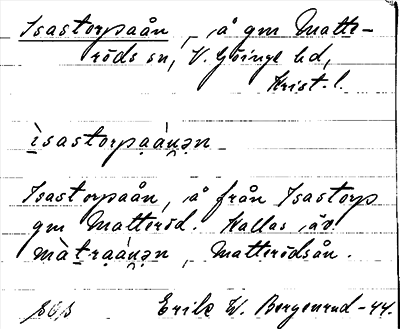 Isastorpaån, å gm Matte-
röds sn, V. Göinge hd,
Krist. l.
ìsastorpa̱á̱ṇən
Isastorpaån, å från Isastorp
gm Matteröd. Kallas äv.
màtra̱á̱ṇən, Matterödsån.
Erik W. Bergenrud -44.